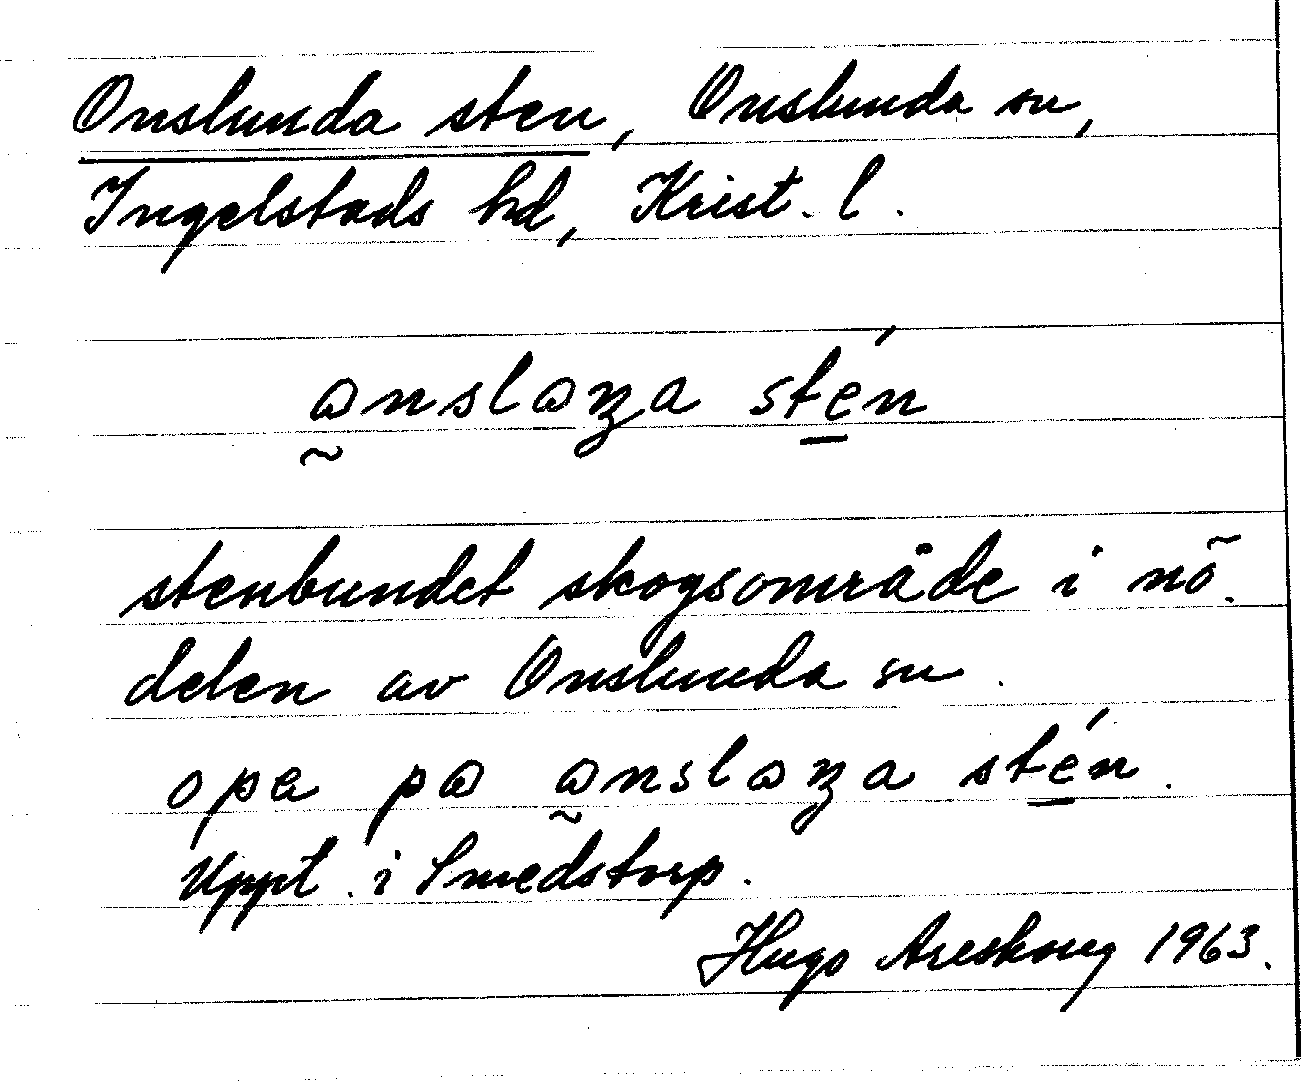 Onslunda sten, Onslunda sn,
Ingelstads hd, Krist. l.
ωnslωnа stén
stenbundet skogsområde i nö.
delen av Onslunda sn.
opa pω ωnslωna stén.
Uppt. i Smedstorp.
Hugo Areskoug 1963.